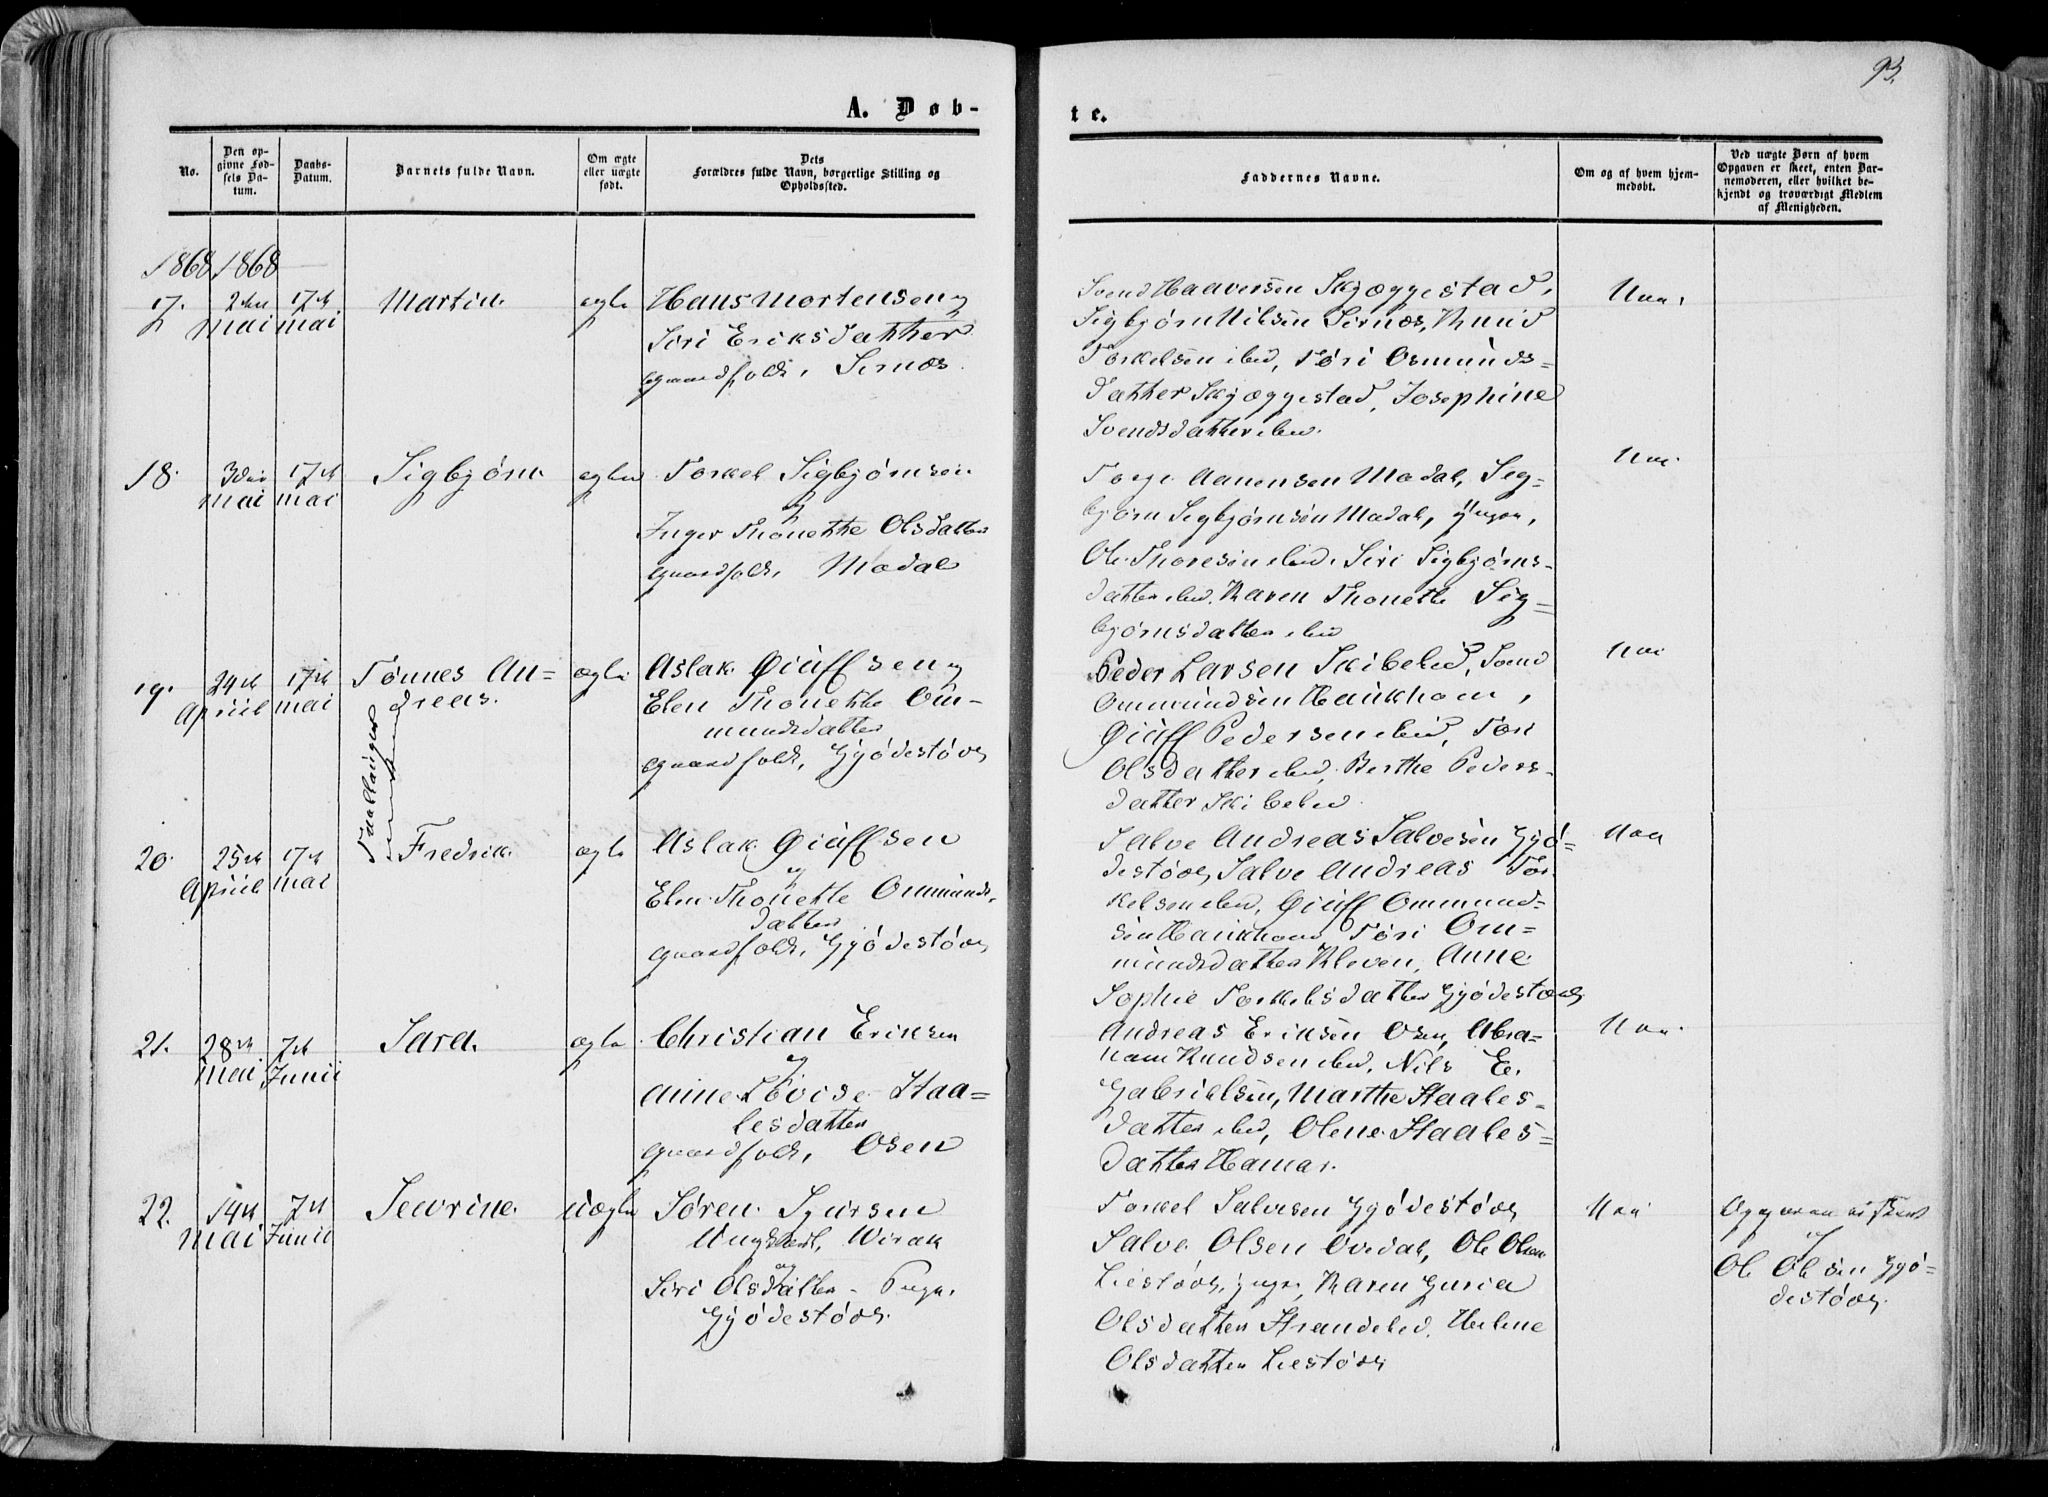 93.
A. Døb-
te.
No.
Den op-
givne Fød-
sels Da-
tum.
Daabs-
Datum.
Barnets fulde Navn.
Om ægte
eller uægte
født.
Dets
Forældres fulde Navn, borgerlige Stilling og
Opholdssted.
Faddernes Navne.
Om og af hvem hjem-
medøbt.
Ved uægte Børn af hvem
Opgaven er skeet, enten Bar-
nemoderen, eller hvilket be-
kjendt og troværdigt Medlem
af Menigheden.
1868 1868
17.
2den
Mai
17de
Mai
Martin
ægte
Hans Mortensen og
Siri Eriksdatter
Gaardfolk, Sirnæs.
Svend Haaversen Skjæggestad,
Sigbjørn Nilsen Sirnæs, Knud
Torkelsen ibid, Tøri Osmunds=
datter Skjæggestad, Josephine
Svendsdatter ibid.
18.
3die
Mai
17de
Mai
Sigbjørn
ægte
Torkel Sigbjørnsen
og
Inger Thonette Olsdatter
Gaardfolk, Modal
Aanensen Modal, Sig=
bjørn Sigbjørnsen Modal,
Ole Thoresen ibid, Siri Sigbjørns-
datter ibid. Karen Thonette Sig=
bjørnsdatter ibid
19.
24de
April
17de
Mai
Tønnes An=
dreas.
Tvillinger
ægte
Aslak Guiffsen og
Elen Thonette Om-
mundsdatter
Gaardfolk, Gyødestøl
Peder Larsen Skibelid, Svend
Ommundsen Haukhom,
Guiff Pedersen ibid, Tøri
Olsdatter ibid, Berthe Peders-
datter Skibelid.
20.
25de
April
17de
Mai
Fredrik
ægte
Aslak Guiffsen
og
Elen Thonette Ommunds-
datter
Gaardfolk, Gyødestøl
Salve Andreas Salvesen Gyø=
destøl, Salve Andreas Tor
kelsen ibid, Guiff Ommund=
sen Haukhom Tøri Om=
mundsdatter Kleven, Anne
Sophie Torkelsdatter Gyødestøl
21.
28de
Mai
7de
Junii
Sara
ægte
Christian Eriksen
og
Anne Lovise Staa=
lesdatter
Gaardfolk, Osen
Andreas Eriksen Osen, Abra=
ham Knudsen ibid, Nils E.
Gabrielsen, Marthe Staales-
datter ibid, Olene Staales=
datter Hamar.
22.
14de
Mai
7de
Junii
Sevrine
uægte
Søren Syvrsen
Ungkarl, Wirak
og
Siri Olsdatter - Pige,
Gyødestøl.
Torkel Salvesen Gyødestøl
Salve Olsen Ovedal, Ole Olsen
Liestøl, Karen Guria
Olsdatter Strandelid, Helene
Olsdatter Liestøl
Opgaven er skeet
af
Ole Olsen Gyø=
destøl.